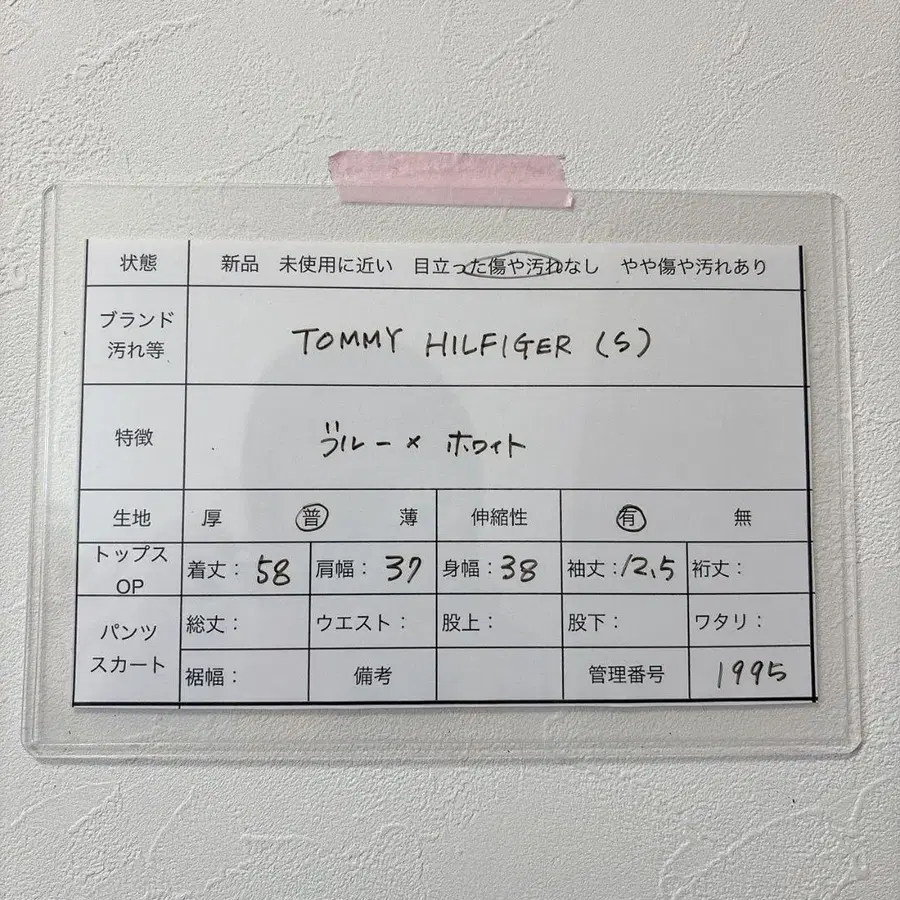 状態 新品 未使用に近い 目立った傷や汚れなし やや傷や汚れあり
ブランド
汚れ等
TOMMY HILFIGER (S)
特徴 ブルー × ホワイト
生地 厚 普 薄 伸縮性 有 無
トップス
OP
着丈: 58 肩幅: 37 身幅: 38 袖丈: 12.5 裄丈:
パンツ
スカート
総丈: ウエスト: 股上: 股下: ワタリ:
裾幅: 備考 管理番号 1995